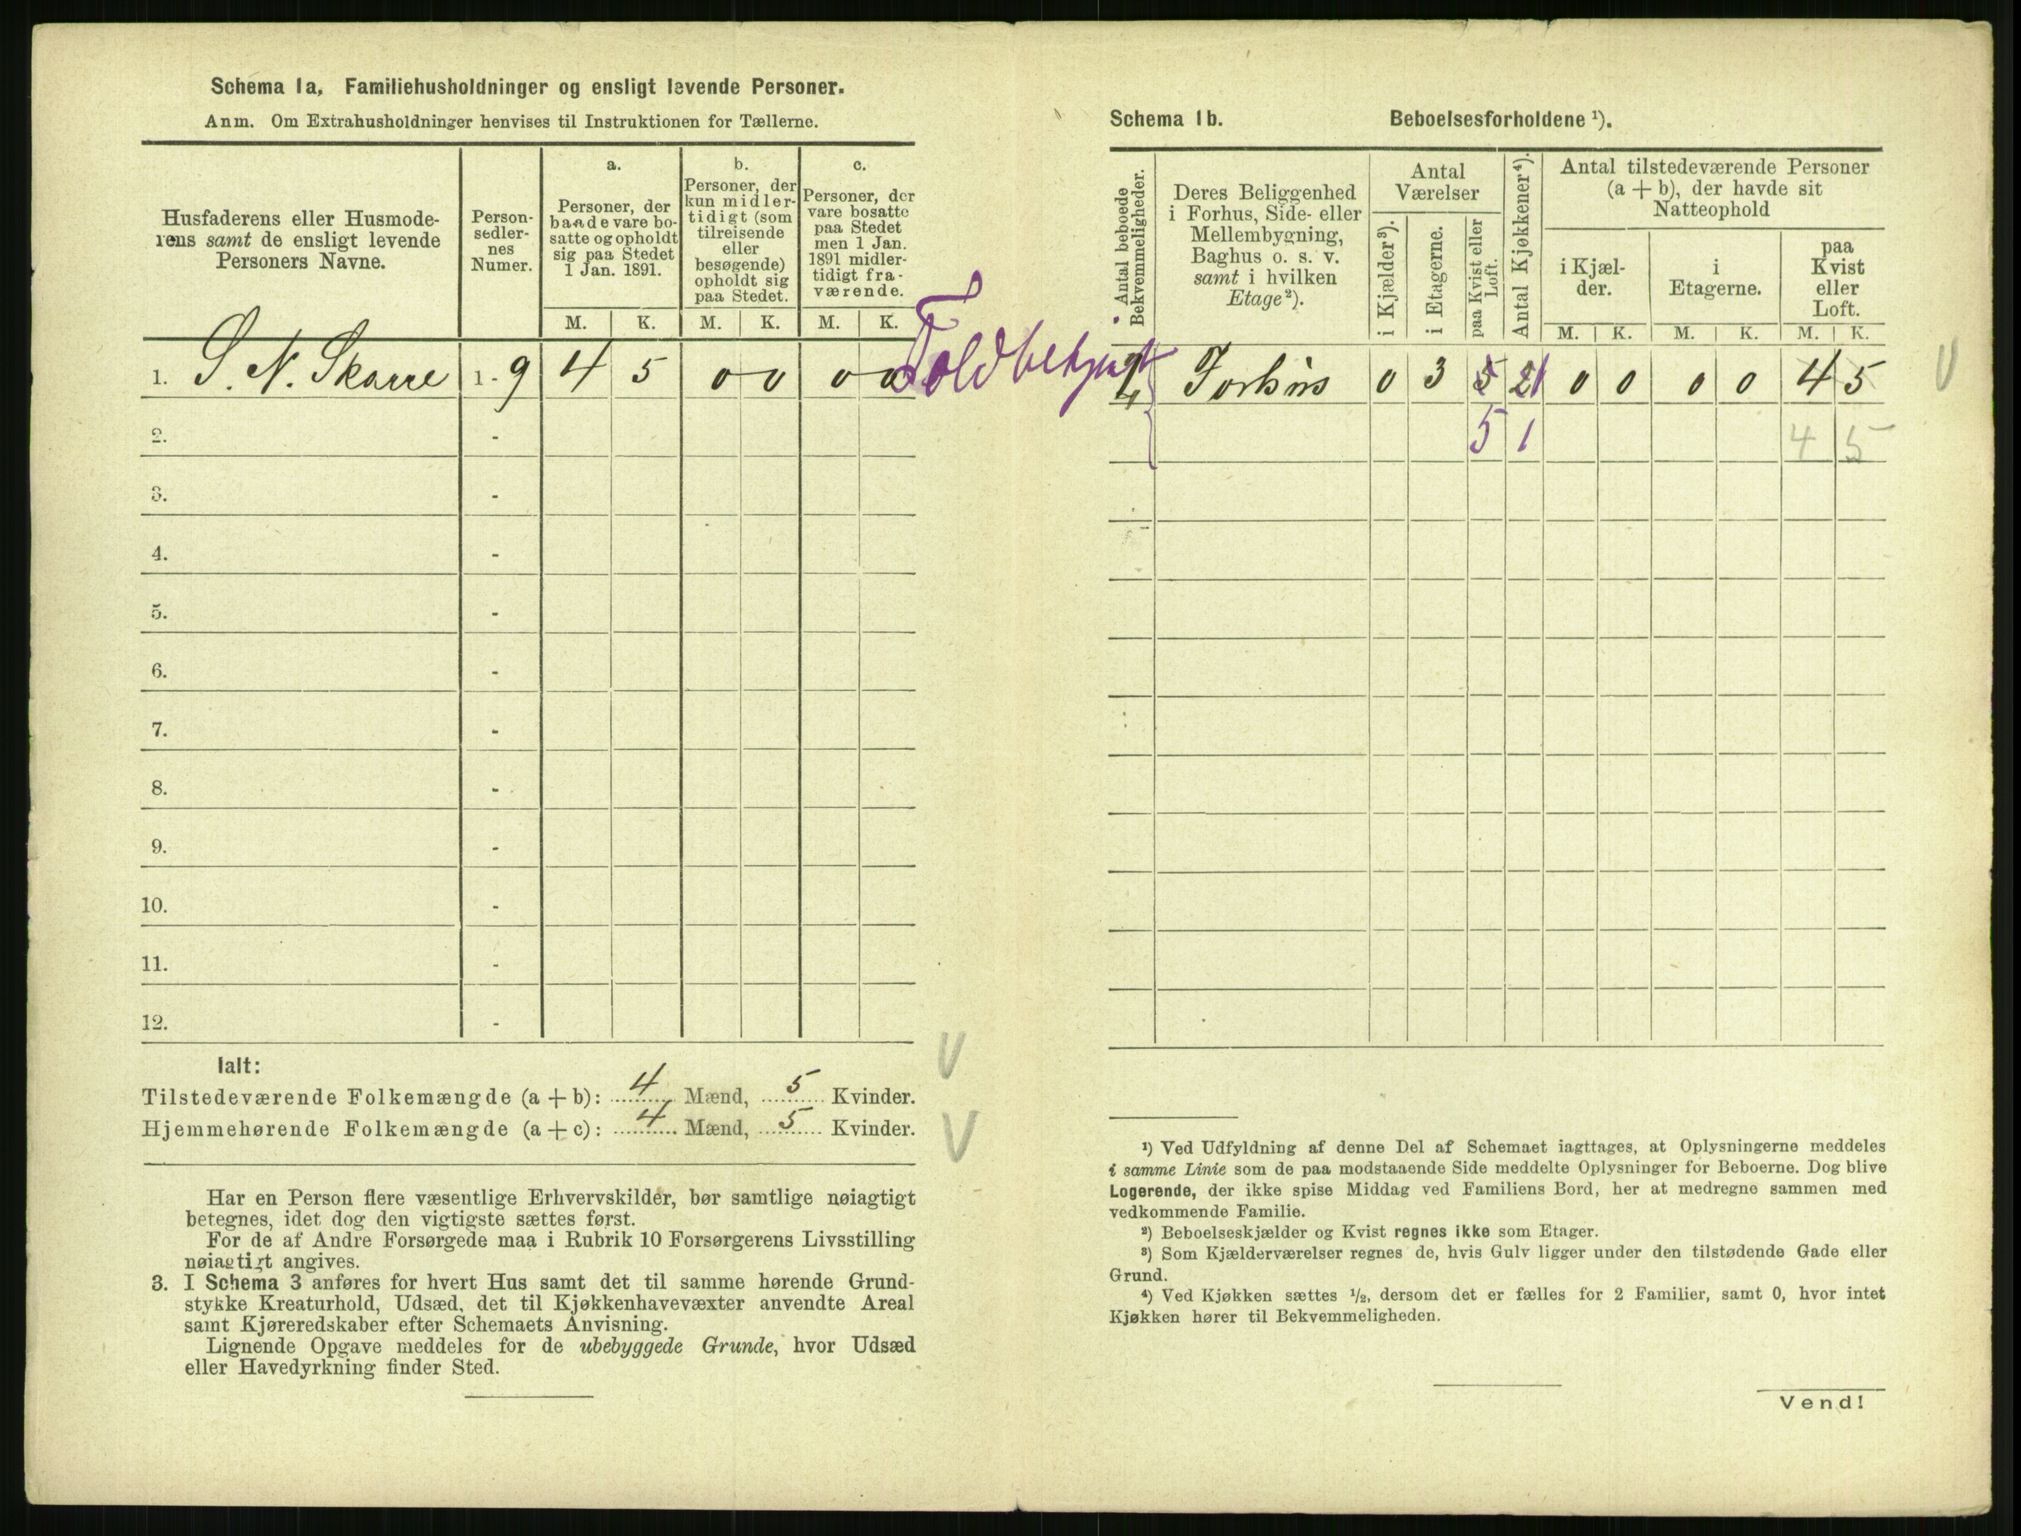 Schema 1a, Familiehusholdninger og ensligt levende Personer.
Anm. Om Extrahusholdninger henvises til Instruktionen for Tællerne.
Husfaderens eller Husmode-
rens samt de ensligt levende
Personers Navne.
Person-
sedler-
nes
Numer.
a.
Personer, der
baade vare bo-
satte og opholdt
sig paa Stedet
1 Jan. 1891.
b.
Personer, der
kun midler-
tidigt (som
tilreisende
eller
besøgende)
opholdt sig
paa Stedet.
c.
Personer, der
vare bosatte
paa Stedet
men 1 Jan.
1891 midler-
tidigt fra-
værende.
M. K. M. K. M. K.
1. S. N. Skarre 1 - 9 4 5 0 0 0 0
Toldbetjent
2. -
3. -
4. -
5. -
6. -
7. -
8. -
9. -
10. -
11. -
12. -
Ialt:
Tilstedeværende Folkemængde (a + b): 4 Mænd, 5 Kvinder.
Hjemmehørende Folkemængde (a + c): 4 Mænd, 5 Kvinder.
Har en Person flere væsentlige Erhvervskilder, bør samtlige nøiagtigt
betegnes, idet dog den vigtigste sættes først.
For de af Andre Forsørgede maa i Rubrik 10 Forsørgerens Livsstilling
nøiagtigt angives.
3. I Schema 3 anføres for hvert Hus samt det til samme hørende Grund-
stykke Kreaturhold, Udsæd, det til Kjøkkenhavevæxter anvendte Areal
samt Kjøreredskaber efter Schemaets Anvisning.
Lignende Opgave meddeles for de ubebyggede Grunde, hvor Udsæd
eller Havedyrkning finder Sted.
Schema 1b. Beboelsesforholdene ¹).
Antal beboede
Bekvemmeligheder.
Deres Beliggenhed
i Forhus, Side- eller
Mellembygning,
Baghus o. s. v.
samt i hvilken
Etage ²).
Antal
Værelser
i Kjælder ³).
i Etagerne.
paa Kvist eller
Loft.
Antal Kjøkkener ⁴).
Antal tilstedeværende Personer
(a + b), der havde sit
Natteophold
i Kjæl-
der.
i
Etagerne.
paa
Kvist
eller
Loft.
M. K. M. K. M. K.
Forhus 0 3 5 2 1 0 0 0 0 4 5
5 1 4 5
¹) Ved Udfyldning af denne Del af Schemaet iagttages, at Oplysningerne meddeles
i samme Linie som de paa modstaaende Side meddelte Oplysninger for Beboerne. Dog blive
Logerende, der ikke spise Middag ved Familiens Bord, her at medregne sammen med
vedkommende Familie.
²) Beboelseskjælder og Kvist regnes ikke som Etager.
³) Som Kjælderværelser regnes de, hvis Gulv ligger under den tilstødende Gade eller
Grund.
⁴) Ved Kjøkken sættes ½, dersom det er fælles for 2 Familier, samt 0, hvor intet
Kjøkken hører til Bekvemmeligheden.
Vend!